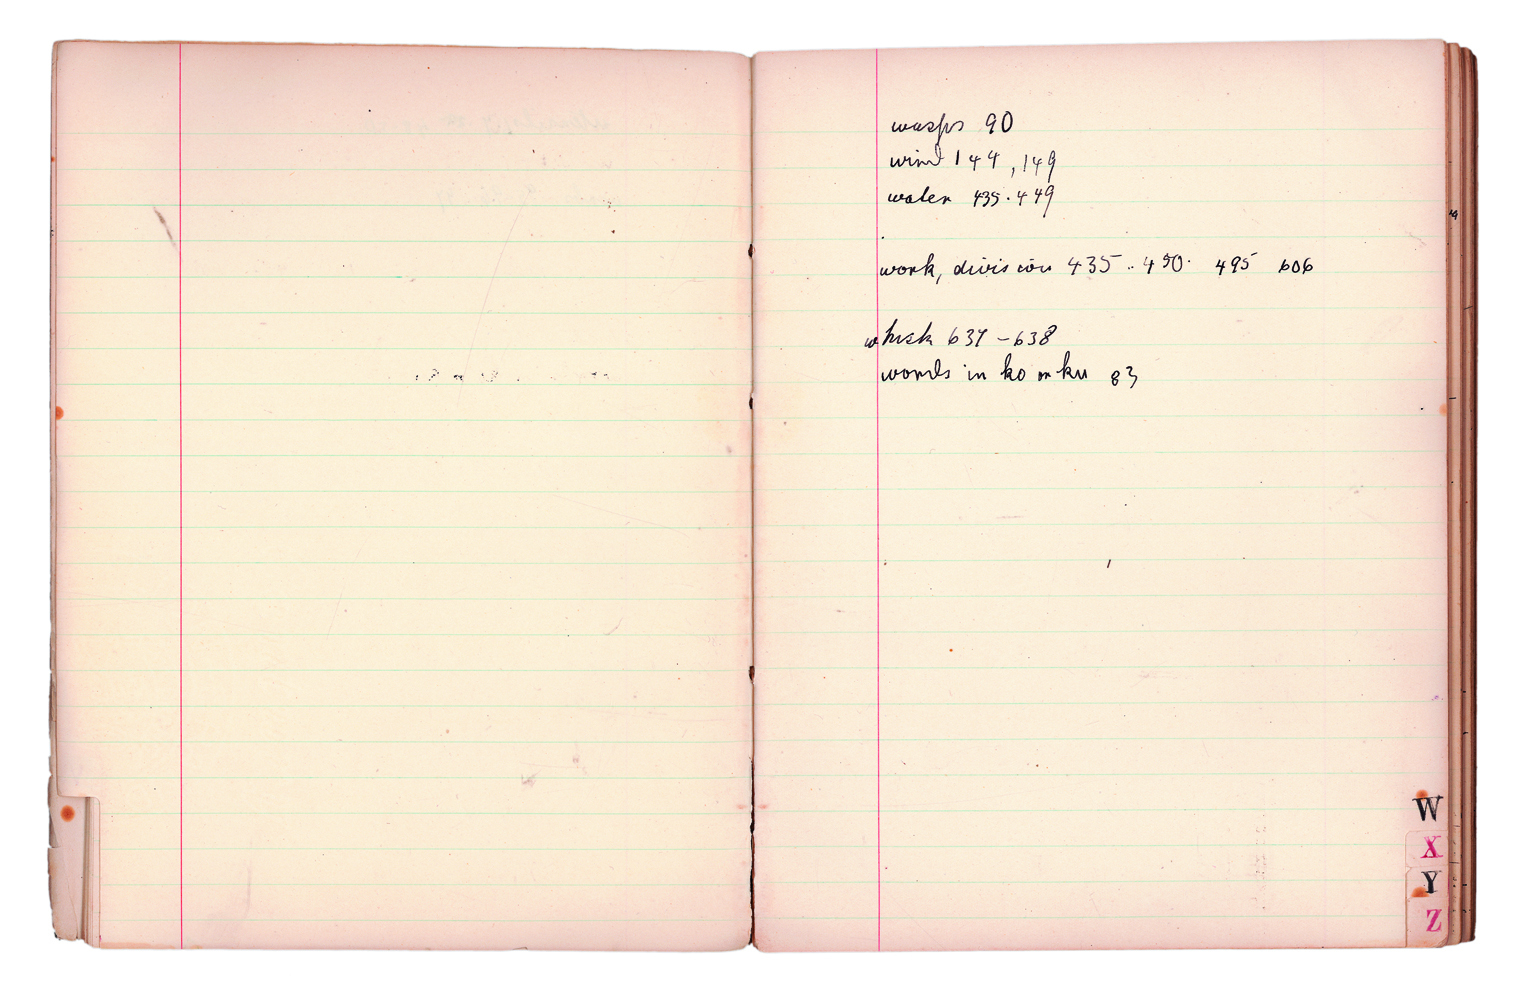 wasps 90
wind 144, 149
water 435. 449
work, division 435.. 450. 495 606
whisk 637 – 638
words in ko or ku 83
W
X
Y
Z